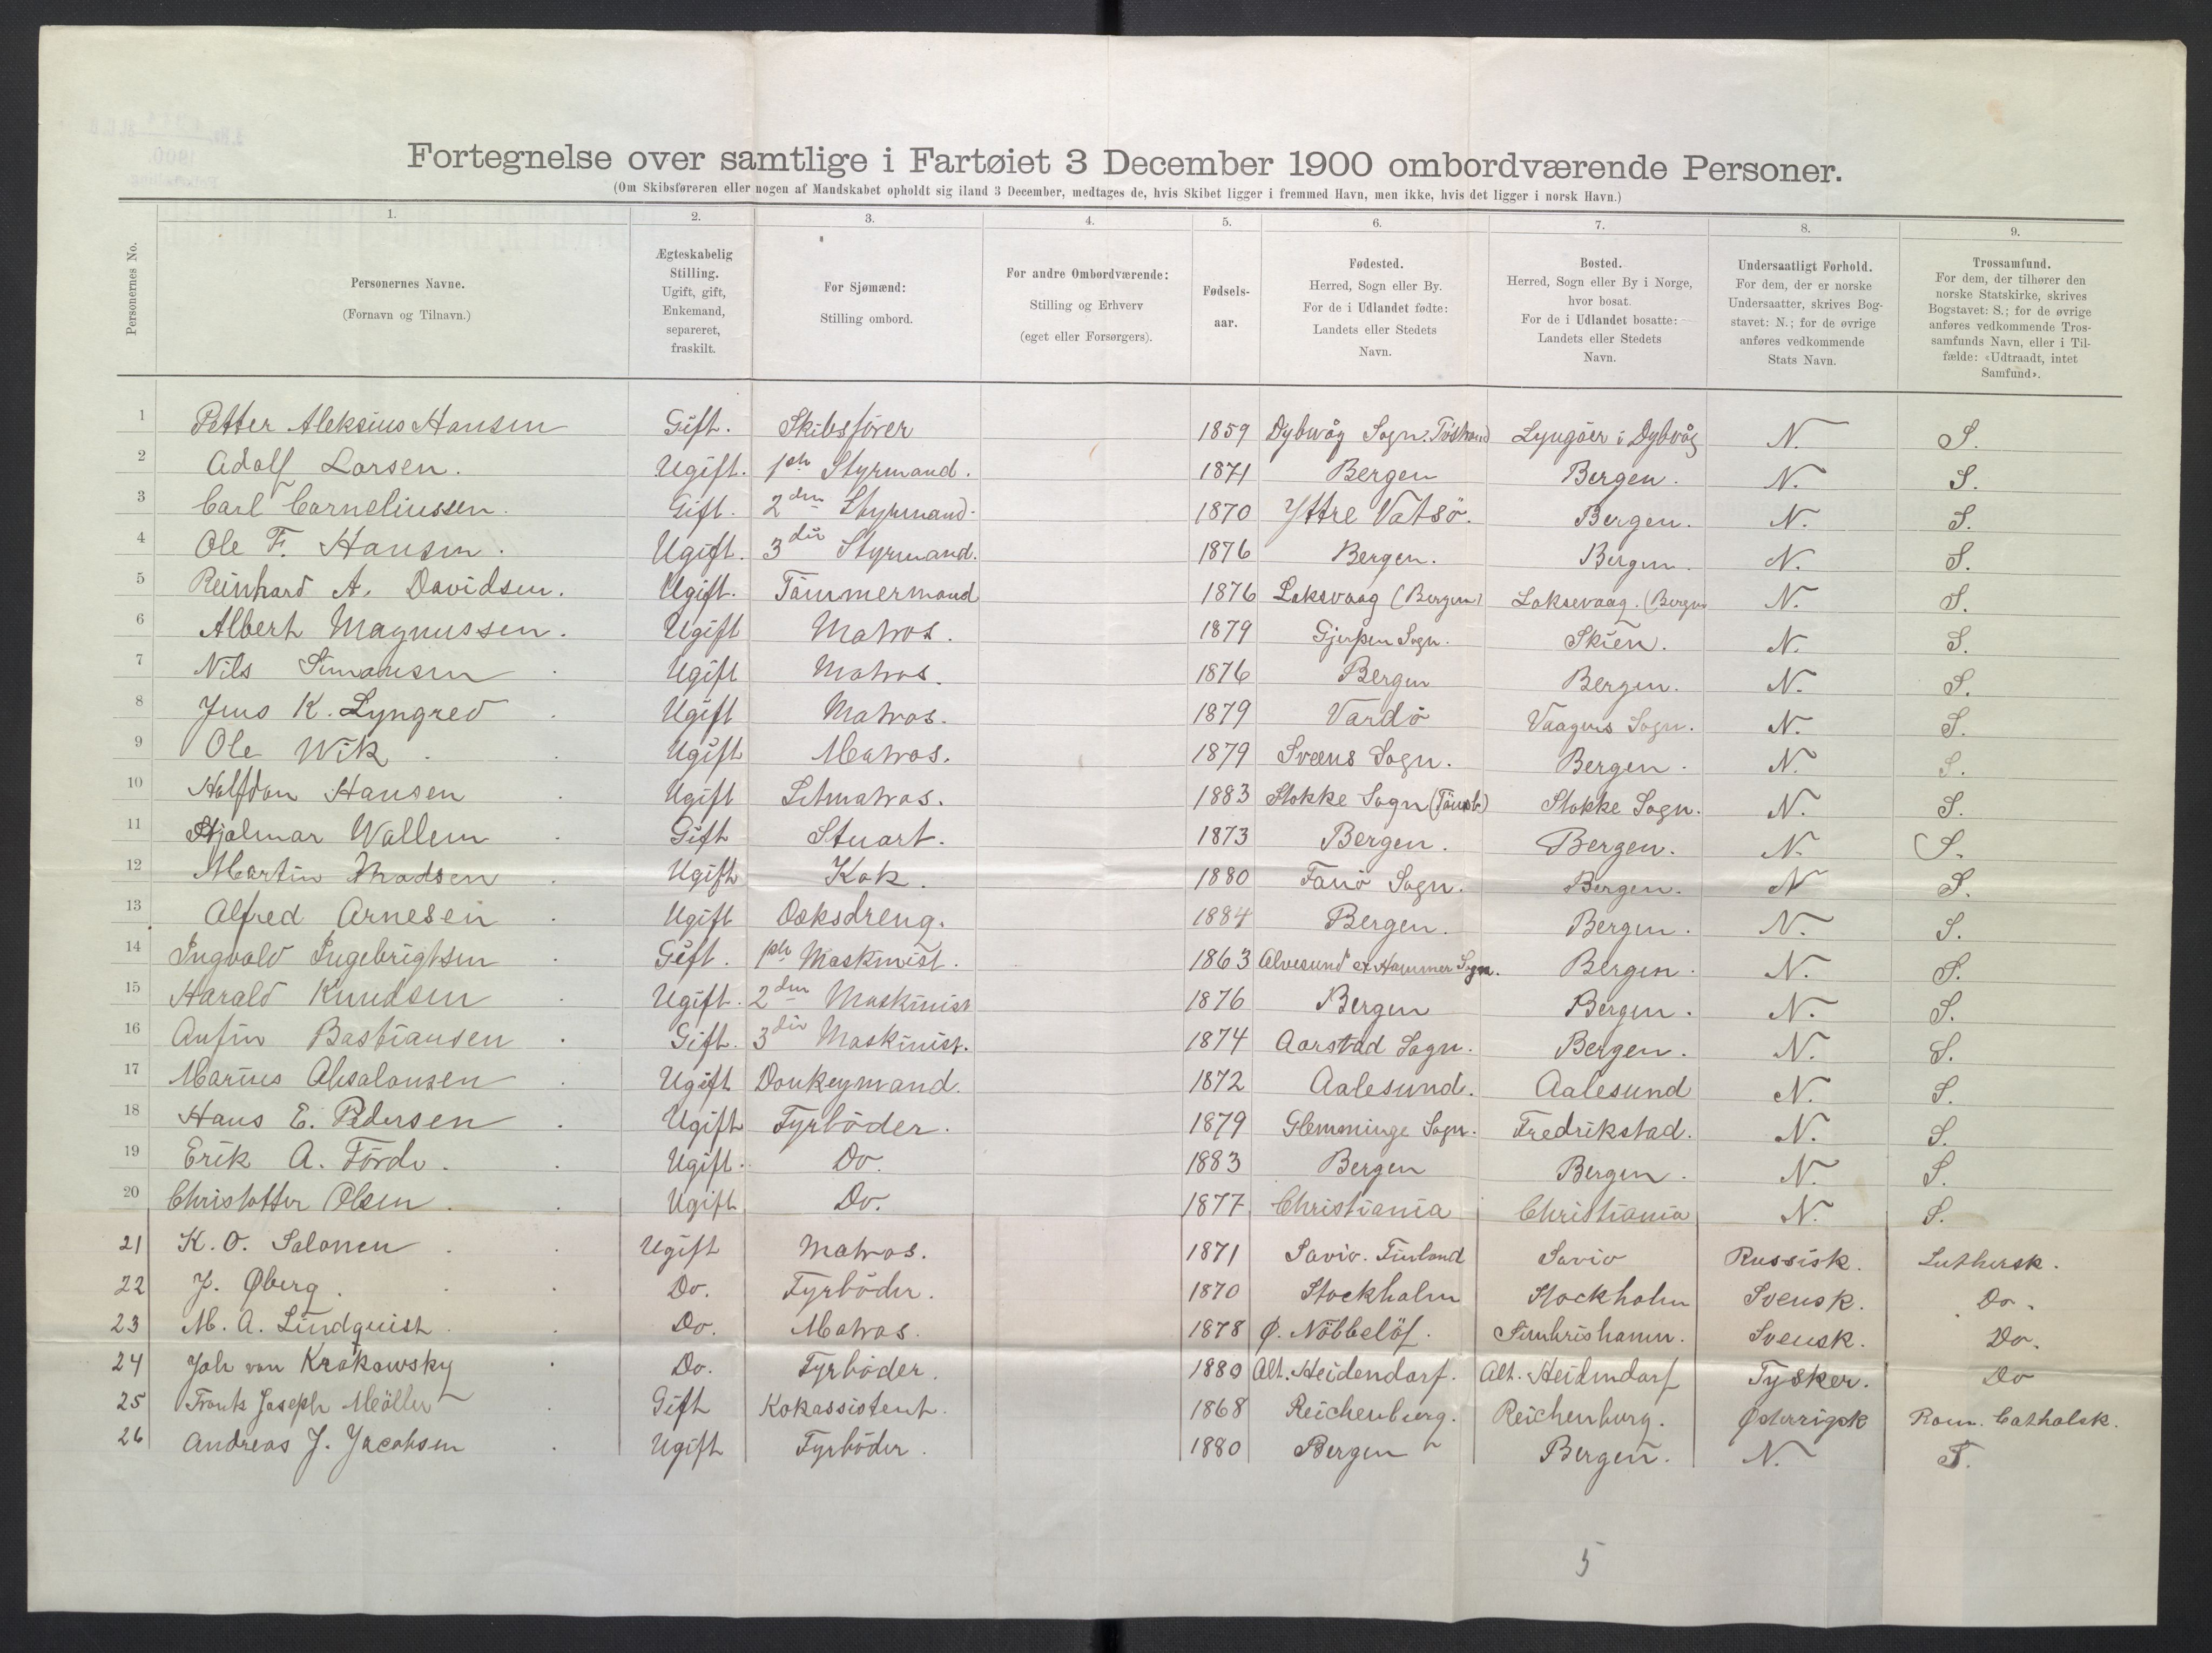 Fortegnelse over samtlige i Fartøiet 3 December 1900 ombordværende Personer.
(Om Skibsføreren eller nogen af Mandskabet opholdt sig iland 3 December, medtages de, hvis Skibet ligger i fremmed Havn, men ikke, hvis det ligger i norsk Havn.)
Personernes No.
1. Personernes Navne. (Fornavn og Tilnavn.)
2. Ægteskabelig Stilling. Ugift, gift, Enkemand, separeret, fraskilt.
3. For Sjømænd: Stilling ombord.
4. For andre Ombordværende: Stilling og Erhverv (eget eller Forsørgers).
5. Fødselsaar.
6. Fødested. Herred, Sogn eller By. For de i Udlandet fødte: Landets eller Stedets Navn.
7. Bosted. Herred, Sogn eller By i Norge, hvor bosat. For de i Udlandet bosatte: Landets eller Stedets Navn.
8. Undersaatligt Forhold. For dem, der er norske Undersaatter, skrives Bogstavet: N.; for de øvrige anføres vedkommende Stats Navn.
9. Trossamfund. For dem, der tilhører den norske Statskirke, skrives Bogstavet: S.; for de øvrige anføres vedkommende Trossamfunds Navn, eller i Tilfælde: «Udtraadt, intet Samfund».
1 Petter Aleksius Hansen Gift. Skibsförer 1859 Dybvåg Sogn. Lyngöer i Dybvåg N. S.
2 Adolf Larsen. Ugift. 1ste Styrmand. 1871 Bergen Bergen. N. S.
3 Carl Corneliussen. Gift. 2den Styrmand. 1870 Yttre Vatsö. Bergen. N. S.
4 Ole F. Hansen. Ugift. 3die Styrmand. 1876 Bergen. Bergen. N. S.
5 Reinhard A. Davidsen. Ugift. Tömmermand 1876 Laksvaag (Bergen) Laksevaag. (Bergen N. S.
6 Albert Magnussen. Ugift Matros. 1879 Gjerpen Sogn. Skien. N. S.
7 Nils Simonsen Ugift Matros. 1876 Bergen Bergen. N. S.
8 Jens K. Lyngred Ugift Matros. 1879 Vardö Vaagens Sogn. N. S.
9 Ole Wik Ugift Matros. 1879 Sveens Sogn. Bergen. N. S.
10 Halfdan Hansen Ugift Letmatros. 1883 Stokke Sogn (Tönsb.) Stokke Sogn. N. S.
11 Hjalmar Wallem Gift Stuart. 1873 Bergen. Bergen. N. S.
12 Martin Madsen Ugift Kok. 1880 Fanö Sogn. Bergen. N S.
13 Alfred Arnesen Ugift Dæksdreng. 1884 Bergen. Bergen. N. S.
14 Ingvald Ingebrigtsen Gift. 1ste Maskinist. 1863 Alvesund & Hammer Sogn. Bergen. N. S.
15 Harald Knudsen Ugift. 2den Maskinist 1876 Bergen Bergen. N. S.
16 Anfin Bastiansen Gift. 3die Maskinist. 1874 Aarstad Sogn. Bergen. N. S.
17 Marius Absalonsen Ugift Donkeymand. 1872 Aalesund. Aalesund N. S.
18 Hans E. Pedersen Ugift Fyrböder. 1879 Glemminge Sogn. Fredrikstad. N. S.
19 Erik A. Förde. Ugift. Do. 1883 Bergen Bergen. N. S.
20 Christoffer Olsen. Ugift Do. 1877 Christiania Christiania N. S.
21 K. O. Salonen Ugift Matros. 1871 Savio. Finland Savio Russisk. Luthersk.
22 J. Øberg. Do. Fyrböder. 1870 Stockholm Stockholm Svensk. Do.
23 M. A. Lindquist Do. Matros. 1878 Ø. Nöbbelöf. Simbrishamn. Svensk. Do.
24 Joh von Krakowsky Do. Fyrböder. 1880 Alt. Heidendorf. Alt. Heidendorf Tysker. Do
25 Frants Joseph Möller Gift Kokassistent. 1868 Reichenburg. Reichenburg. Østerrigsk Rom. Catholsk.
26 Andreas J. Jacobsen Ugift Fyrböder. 1880 Bergen Bergen. N. S.
5